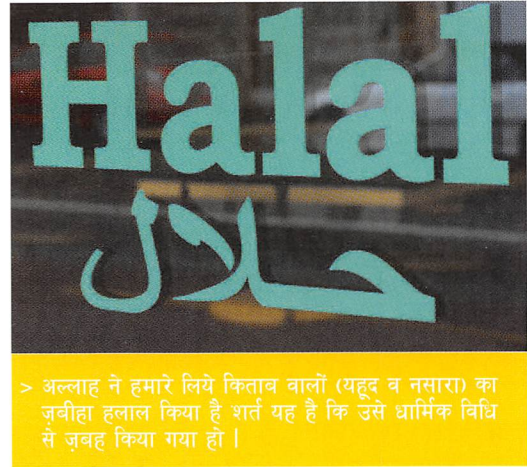 Halal
حلال
> अल्लाह ने हमारे लिये किताब वालों (यहूद व नसारा) का
ज़बीहा हलाल किया है शर्त यह है कि उसे धार्मिक विधि
से ज़बह किया गया हो |